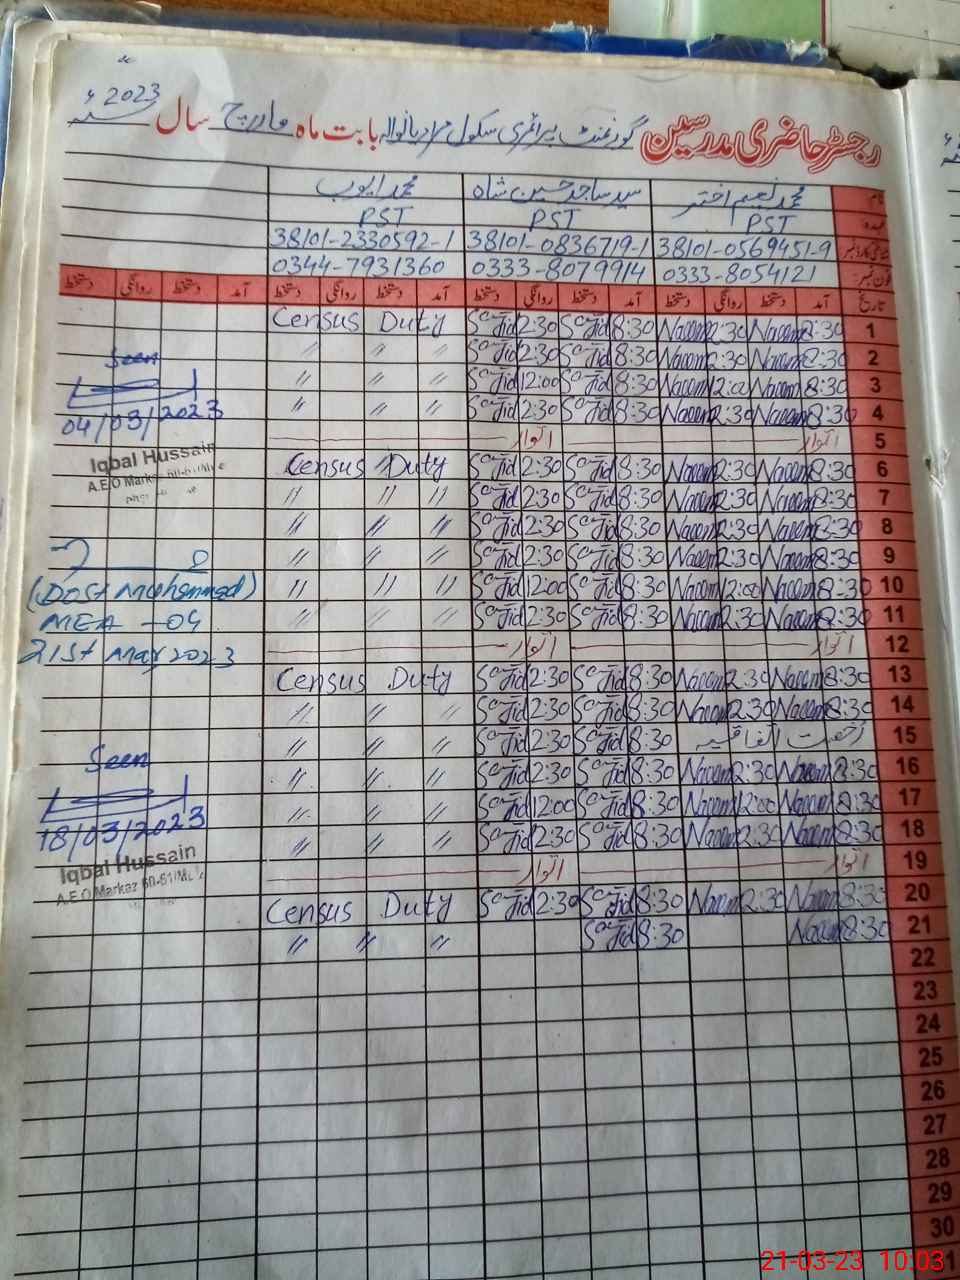 رجسٹر حاضری مدرسین گورنمنٹ پرائمری سکول بابت ماہ مارچ سال 2023ء
نام محمد نعیم اختر سید ساجد حسین شاہ محمد ایوب
عہدہ PST PST PST
38101-0569451-9 38101-0836719-1 38101-2330592-1
فون نمبر 0333-8054121 0333-8079914 0344-7931360
تاریخ آمد دستخط روانگی دستخط آمد دستخط روانگی دستخط آمد دستخط روانگی دستخط آمد دستخط روانگی دستخط
1 8:30 Naeem 2:30 Naeem 8:30 Sajid 2:30 Sajid Census Duty
2 8:30 Naeem 2:30 Naeem 8:30 Sajid 2:30 Sajid " " "
3 8:30 Naeem 12:00 Naeem 8:30 Sajid 12:00 Sajid " " "
4 8:30 Naeem 2:30 Naeem 8:30 Sajid 2:30 Sajid " " "
5 اتوار اتوار
6 8:30 Naeem 2:30 Naeem 8:30 Sajid 2:30 Sajid Census Duty
7 8:30 Naeem 2:30 Naeem 8:30 Sajid 2:30 Sajid " " "
8 8:30 Naeem 2:30 Naeem 8:30 Sajid 2:30 Sajid " " "
9 8:30 Naeem 2:30 Naeem 8:30 Sajid 2:30 Sajid " " "
10 8:30 Naeem 12:00 Naeem 8:30 Sajid 12:00 Sajid " " "
11 8:30 Naeem 2:30 Naeem 8:30 Sajid 2:30 Sajid " " "
12 اتوار اتوار
13 8:30 Naeem 2:30 Naeem 8:30 Sajid 2:30 Sajid Census Duty
14 8:30 Naeem 2:30 Naeem 8:30 Sajid 2:30 Sajid " " "
15 رخصت اتفاقیہ 8:30 Sajid 2:30 Sajid " " "
16 8:30 Naeem 2:30 Naeem 8:30 Sajid 2:30 Sajid " " "
17 8:30 Naeem 12:00 Naeem 8:30 Sajid 12:00 Sajid " " "
18 8:30 Naeem 2:30 Naeem 8:30 Sajid 2:30 Sajid " " "
19 اتوار اتوار
20 8:30 Naeem 2:30 Naeem 8:30 Sajid 2:30 Sajid Census Duty
21 8:30 Naeem 8:30 Sajid " " "
22
23
24
25
26
27
28
29
30
Seen
04/03/2023
Iqbal Hussain
A.E.O Markaz 60-61/M
(Dost Muhammad)
MEA -04
21st Mar 2023
Seen
18/03/2023
Iqbal Hussain
A.E.O Markaz 60-61/M
21-03-23 10:03